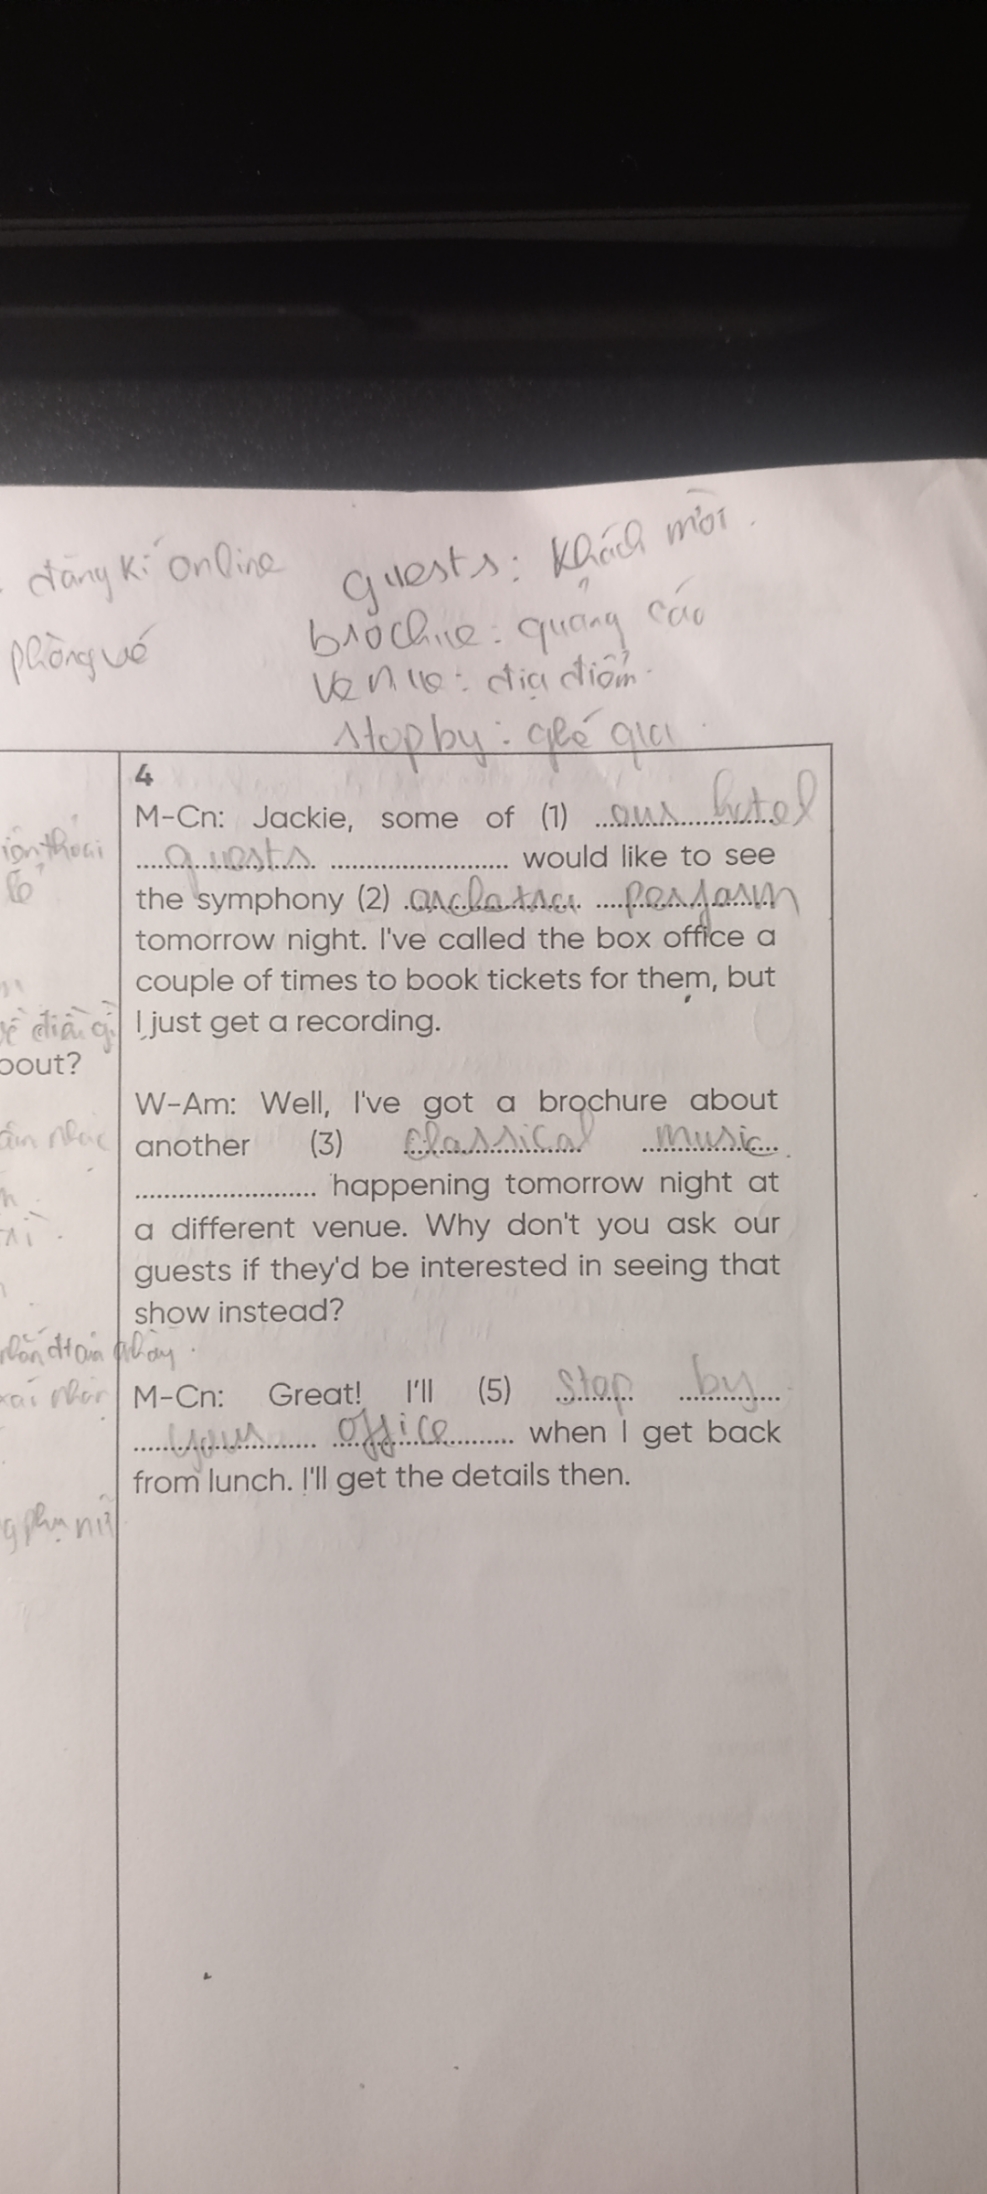 đăng kí online
guests: khách mời.
phòng vé
brochue: quảng cáo
venue: địa điểm.
stop by: ghé qua.
4
M-Cn: Jackie, some of (1) our hotel
guests would like to see
the symphony (2) orchatra perform
tomorrow night. I've called the box office a
couple of times to book tickets for them, but
I just get a recording.
về điều gì
bout?
W-Am: Well, I've got a brochure about
another (3) classical music
happening tomorrow night at
a different venue. Why don't you ask our
guests if they'd be interested in seeing that
show instead?
M-Cn: Great! I'll (5) stop by
your office when I get back
from lunch. I'll get the details then.
g phụ nữ